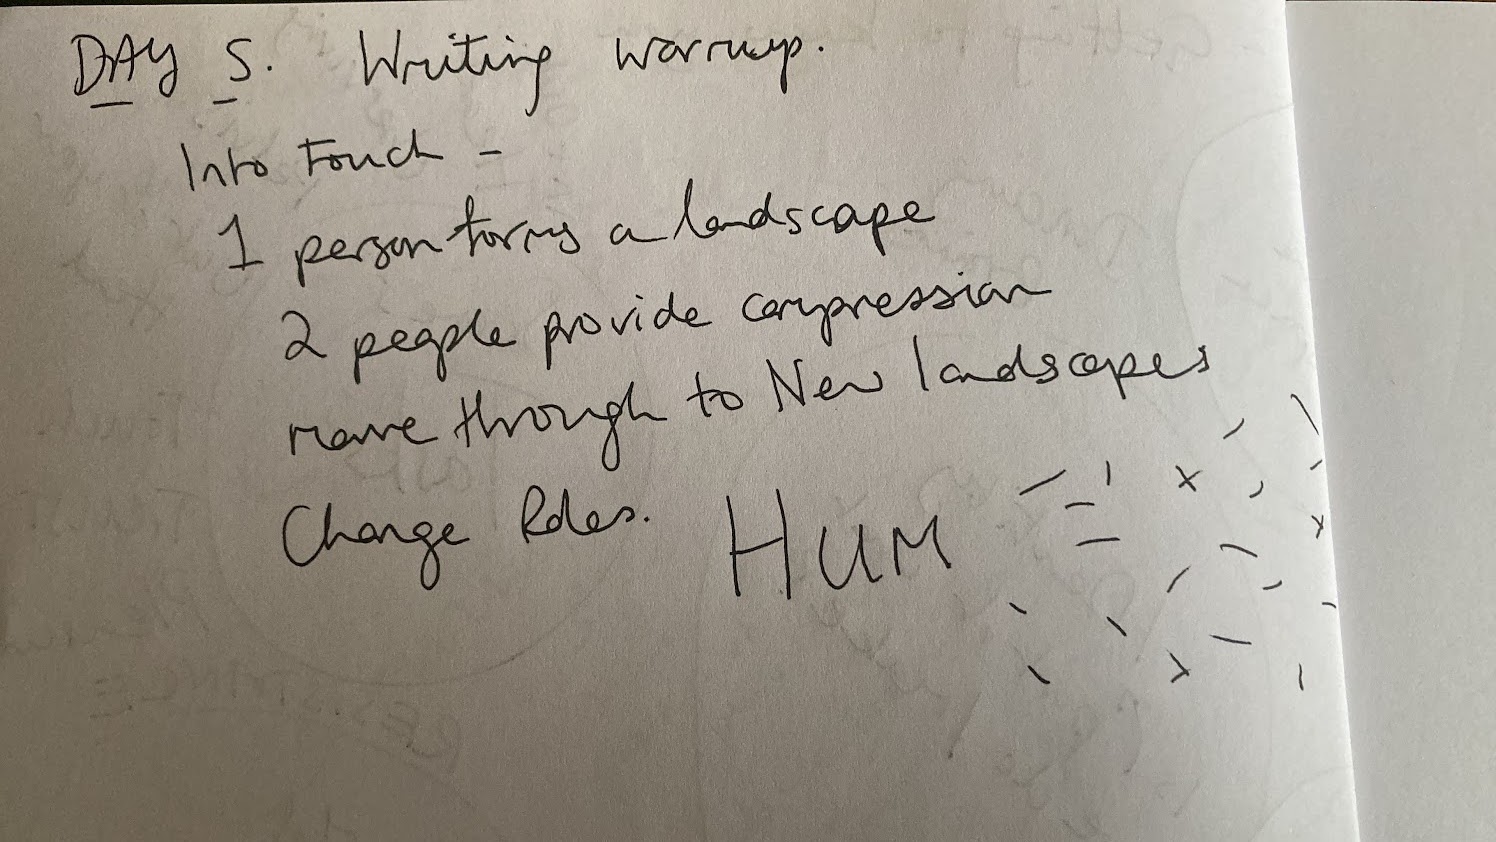 DAY 5. Writing warmup.
Into touch -
1 person forms a landscape
2 people provide compression
move through to New landscapes
Change Roles. HUM